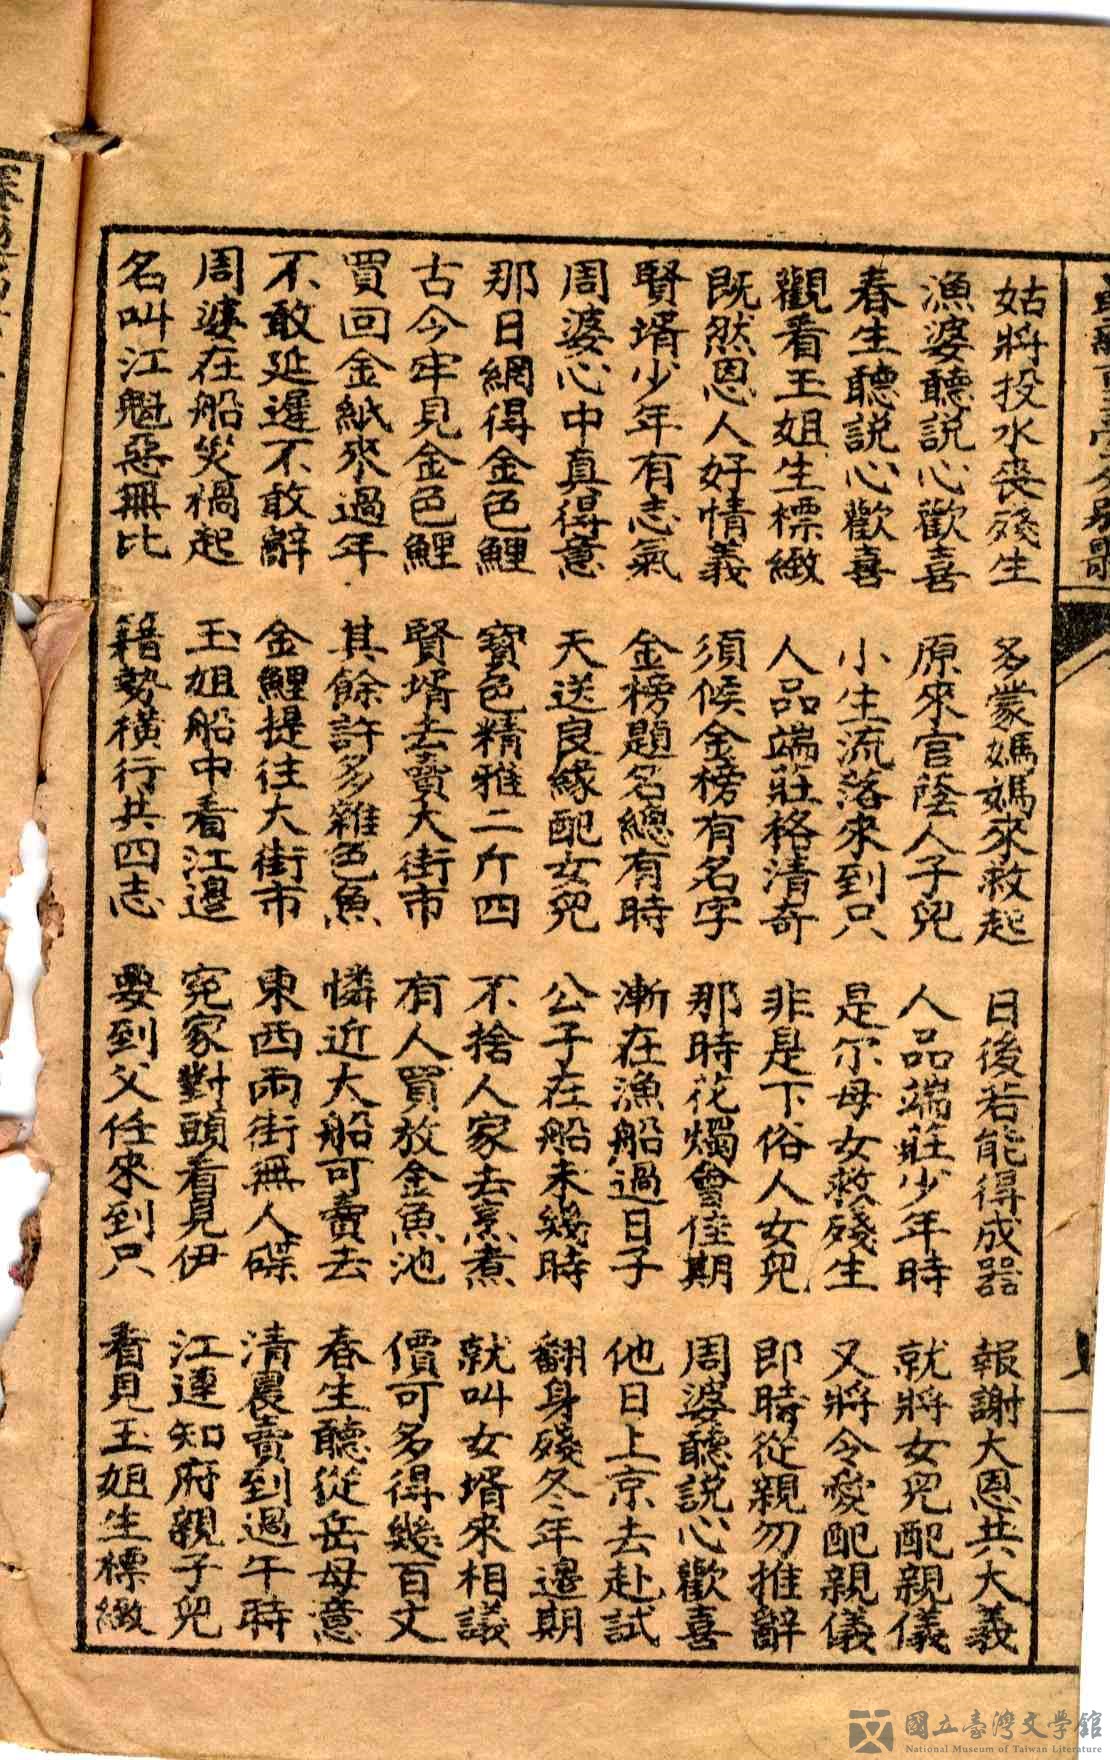 姑將投水喪殘生 多蒙媽媽來救起 日後若能得成器 報謝大恩共大義
漁婆聽說心歡喜 原來官蔭人子兒 人品端莊少年時 就將女兒配親儀
春生聽說心歡喜 小生流落來到只 是尔母女救殘生 又將令愛配親儀
觀看玉姐生標緻 人品端莊格清奇 非是下俗人女兒 即時從親勿推辭
既然恩人好情義 須候金榜有名字 那時花燭會佳期 周婆聽說心歡喜
賢壻少年有志氣 金榜題名總有時 漸在漁船過日子 他日上京去赴試
周婆心中真得意 天送良緣配女兒 公子在船未幾時 翻身殘冬年邊期
那日網得金色鯉 寶色精雅二斤四 不捨人家去烹煮 就叫女壻來相議
古今牢見金色鯉 賢壻去賣大街市 有人買放金魚池 價可多得幾百文
買回金紙來過年 其餘許多雜色魚 憐近大船可賣去 春生聽從岳母意
不敢延遲不敢辭 金鯉提往大街市 東西兩街無人碟 清晨賣到過午時
周婆在船災禍起 玉姐船中看江邊 冤家對頭看見伊 江連知府親子兒
名叫江魁惡無比 籍勢橫行共四志 要到父任來到只 看見玉姐生標緻
國立臺灣文學館
National Museum of Taiwan Literature